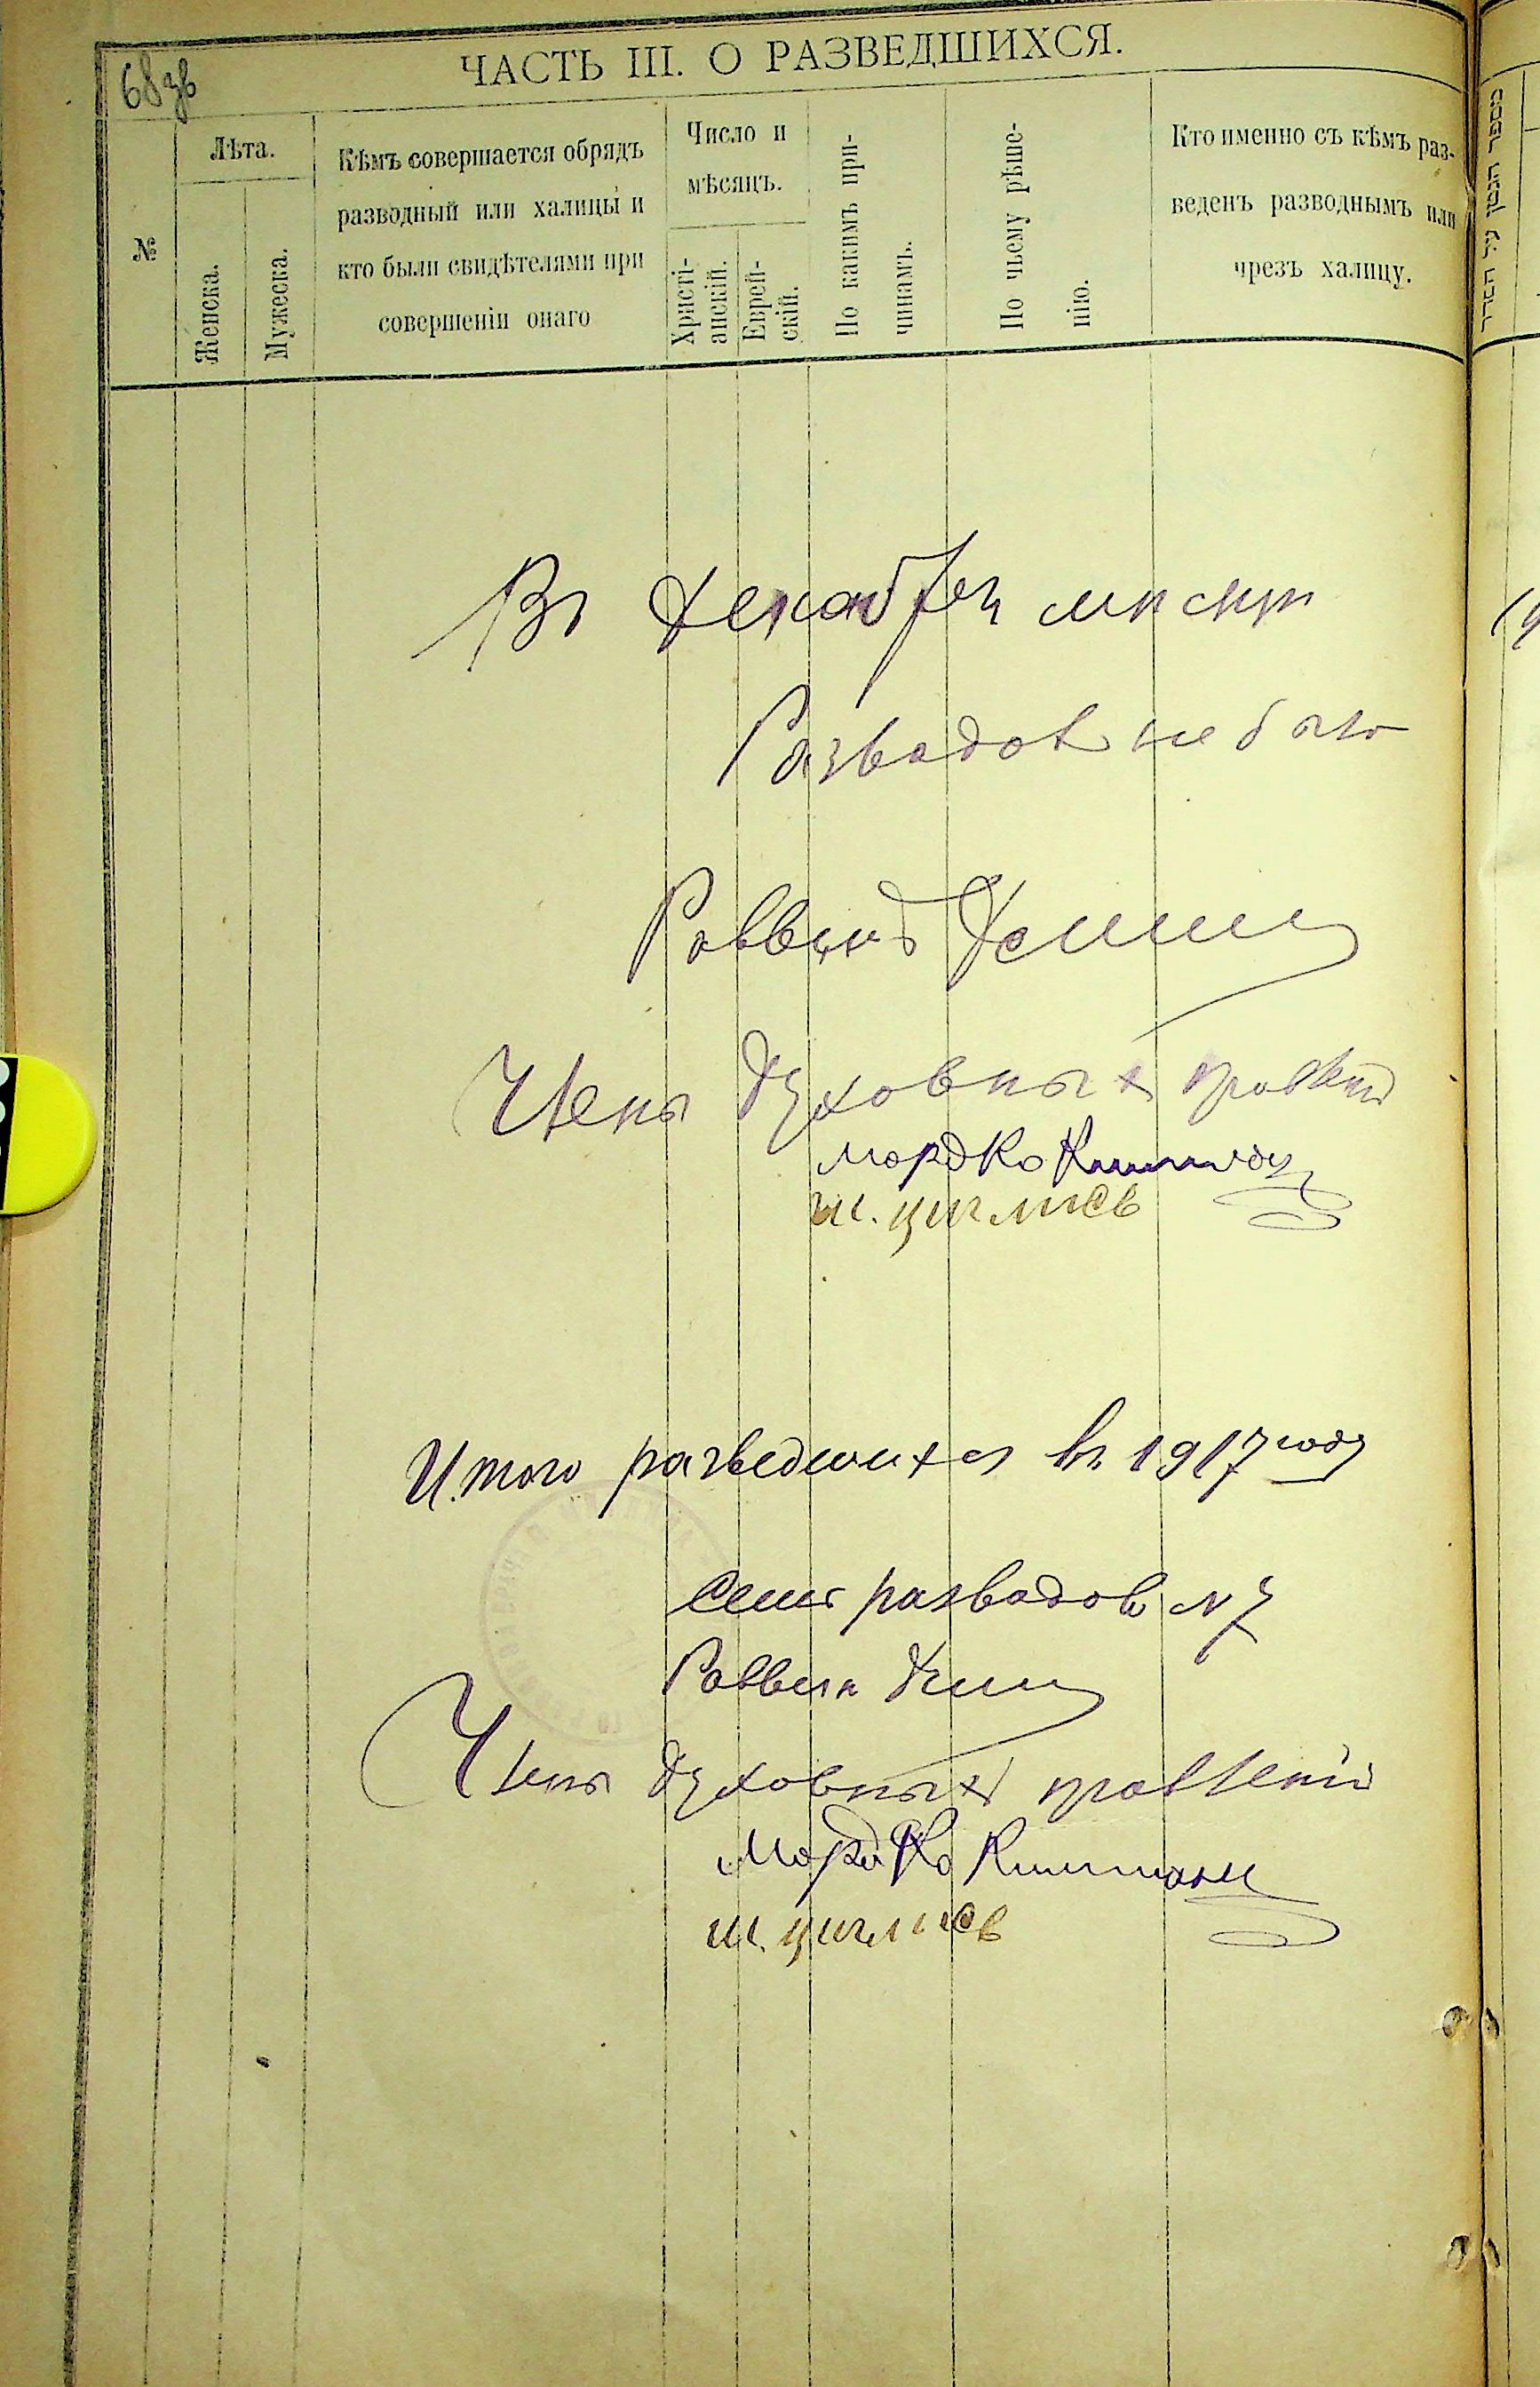 68 зв
ЧАСТЬ III. О РАЗВЕДШИХСЯ.
№
Лѣта.
Женска.
Мужеска.
Кѣмъ совершается обрядъ
разводный или халицы и
кто были свидѣтелями при
совершеніи онаго
Число и
мѣсяцъ.
Христі-
анскій.
Еврей-
скій.
По какимъ при-
чинамъ.
По чьему рѣше-
нію.
Кто именно съ кѣмъ раз-
веденъ разводнымъ или
чрезъ халицу.
מספר הגטין על הסדר
Въ Декабрѣ мѣсяцѣ
Разводов не было
Раввинъ
Члены духовныхъ правленій
Мордко
Ш.
Итого разведшихся въ 1917 году
Семь разводовъ № 7
Раввинъ
Члены духовныхъ правленій
Мордко
Ш.